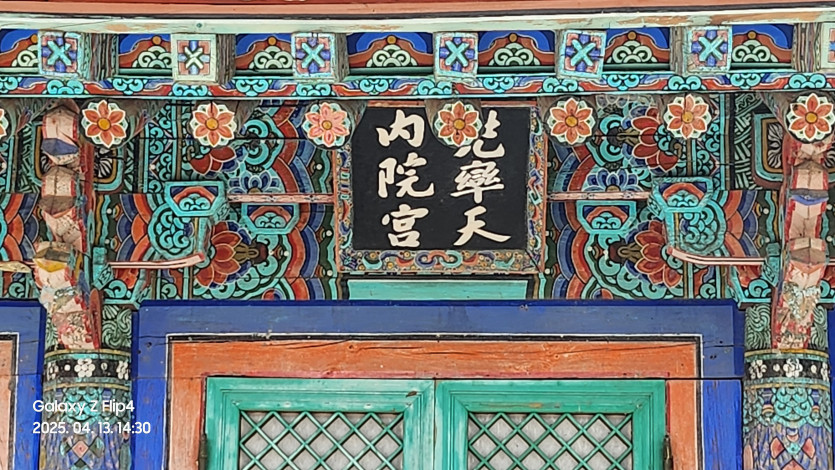 率天
內院宮
Galaxy Z Flip4
2025. 04. 13. 14:30